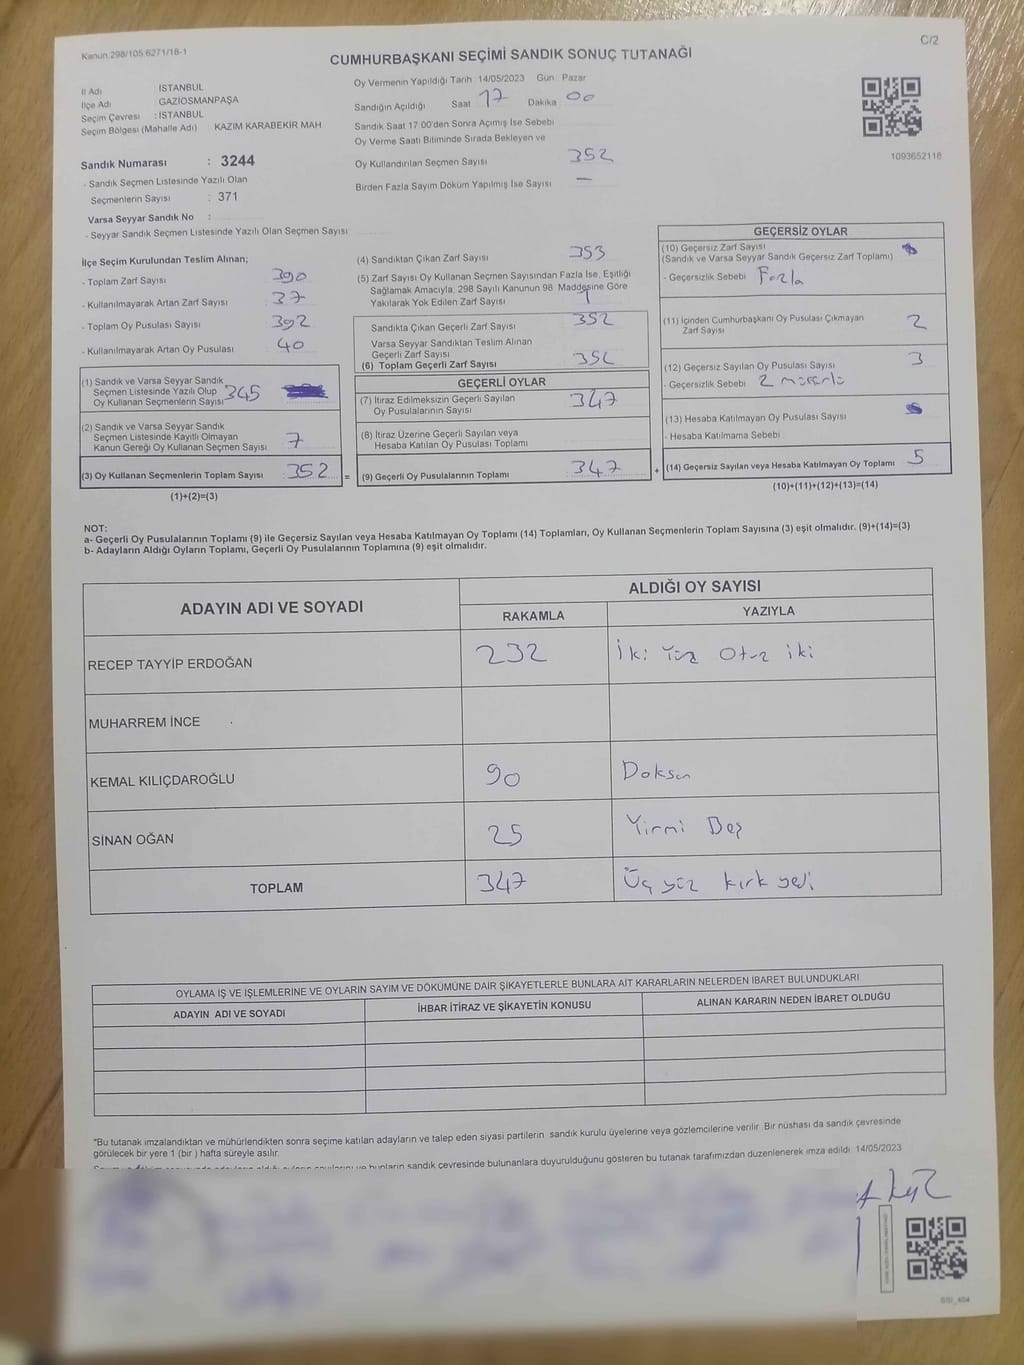 Kanun 298/105.6271/18-1
C/2
CUMHURBAŞKANI SEÇİMİ SANDIK SONUÇ TUTANAĞI
İl Adı İSTANBUL
İlçe Adı GAZİOSMANPAŞA
Seçim Çevresi : İSTANBUL
Seçim Bölgesi (Mahalle Adı) KAZIM KARABEKİR MAH
Sandık Numarası : 3244
- Sandık Seçmen Listesinde Yazılı Olan
Seçmenlerin Sayısı : 371
Varsa Seyyar Sandık No :
- Seyyar Sandık Seçmen Listesinde Yazılı Olan Seçmen Sayısı
Oy Vermenin Yapıldığı Tarih 14/05/2023 Gün Pazar
Sandığın Açıldığı Saat 17 Dakika 00
Sandık Saat 17 00'den Sonra Açımış İse Sebebi
Oy Verme Saati Bitiminde Sırada Bekleyen ve
Oy Kullandırılan Seçmen Sayısı 352
Birden Fazla Sayım Döküm Yapılmış İse Sayısı —
1093652118
İlçe Seçim Kurulundan Teslim Alınan;
- Toplam Zarf Sayısı 390
- Kullanılmayarak Artan Zarf Sayısı 37
- Toplam Oy Pusulası Sayısı 392
- Kullanılmayarak Artan Oy Pusulası 40
(1) Sandık ve Varsa Seyyar Sandık
Seçmen Listesinde Yazılı Olup 345
Oy Kullanan Seçmenlerin Sayısı
(2) Sandık ve Varsa Seyyar Sandık
Seçmen Listesinde Kayıtlı Olmayan
Kanun Gereği Oy Kullanan Seçmen Sayısı 7
(3) Oy Kullanan Seçmenlerin Toplam Sayısı 352 =
(1)+(2)=(3)
(4) Sandıktan Çıkan Zarf Sayısı 353
(5) Zarf Sayısı Oy Kullanan Seçmen Sayısından Fazla İse, Eşitliği
Sağlamak Amacıyla, 298 Sayılı Kanunun 98 Maddesine Göre
Yakılarak Yok Edilen Zarf Sayısı 1
Sandıkta Çıkan Geçerli Zarf Sayısı 352
Varsa Seyyar Sandıktan Teslim Alınan
Geçerli Zarf Sayısı
(6) Toplam Geçerli Zarf Sayısı 352
GEÇERLİ OYLAR
(7) İtiraz Edilmeksizin Geçerli Sayılan
Oy Pusulalarının Sayısı 347
(8) İtiraz Üzerine Geçerli Sayılan veya
Hesaba Katılan Oy Pusulası Toplamı
(9) Geçerli Oy Pusulalarının Toplamı 347 +
GEÇERSİZ OYLAR
(10) Geçersiz Zarf Sayısı
(Sandık ve Varsa Seyyar Sandık Geçersiz Zarf Toplamı)
- Geçersizlik Sebebi Fazla
(11) İçinden Cumhurbaşkanı Oy Pusulası Çıkmayan
Zarf Sayısı 2
(12) Geçersiz Sayılan Oy Pusulası Sayısı 3
- Geçersizlik Sebebi 2
(13) Hesaba Katılmayan Oy Pusulası Sayısı
- Hesaba Katılmama Sebebi
(14) Geçersiz Sayılan veya Hesaba Katılmayan Oy Toplamı 5
(10)+(11)+(12)+(13)=(14)
NOT:
a- Geçerli Oy Pusulalarının Toplamı (9) ile Geçersiz Sayılan veya Hesaba Katılmayan Oy Toplamı (14) Toplamları, Oy Kullanan Seçmenlerin Toplam Sayısına (3) eşit olmalıdır. (9)+(14)=(3)
b- Adayların Aldığı Oyların Toplamı, Geçerli Oy Pusulalarının Toplamına (9) eşit olmalıdır.
ADAYIN ADI VE SOYADI
ALDIĞI OY SAYISI
RAKAMLA YAZIYLA
RECEP TAYYİP ERDOĞAN 232 İki Yüz Otuz iki
MUHARREM İNCE
KEMAL KILIÇDAROĞLU 90 Doksan
SİNAN OĞAN 25 Yirmi Beş
TOPLAM 347 Üç yüz kırk yedi
OYLAMA İŞ VE İŞLEMLERİNE VE OYLARIN SAYIM VE DÖKÜMÜNE DAİR ŞİKAYETLERLE BUNLARA AİT KARARLARIN NELERDEN İBARET BULUNDUKLARI
ADAYIN ADI VE SOYADI İHBAR İTİRAZ VE ŞİKAYETİN KONUSU ALINAN KARARIN NEDEN İBARET OLDUĞU
"Bu tutanak imzalandıktan ve mühürlendikten sonra seçime katılan adayların ve talep eden siyasi partilerin sandık kurulu üyelerine veya gözlemcilerine verilir Bir nüshası da sandık çevresinde
görülecek bir yere 1 (bir ) hafta süreyle asılır.
bunların sandık çevresinde bulunanlara duyurulduğunu gösteren bu tutanak tarafımızdan düzenlenerek imza edildi 14/05/2023